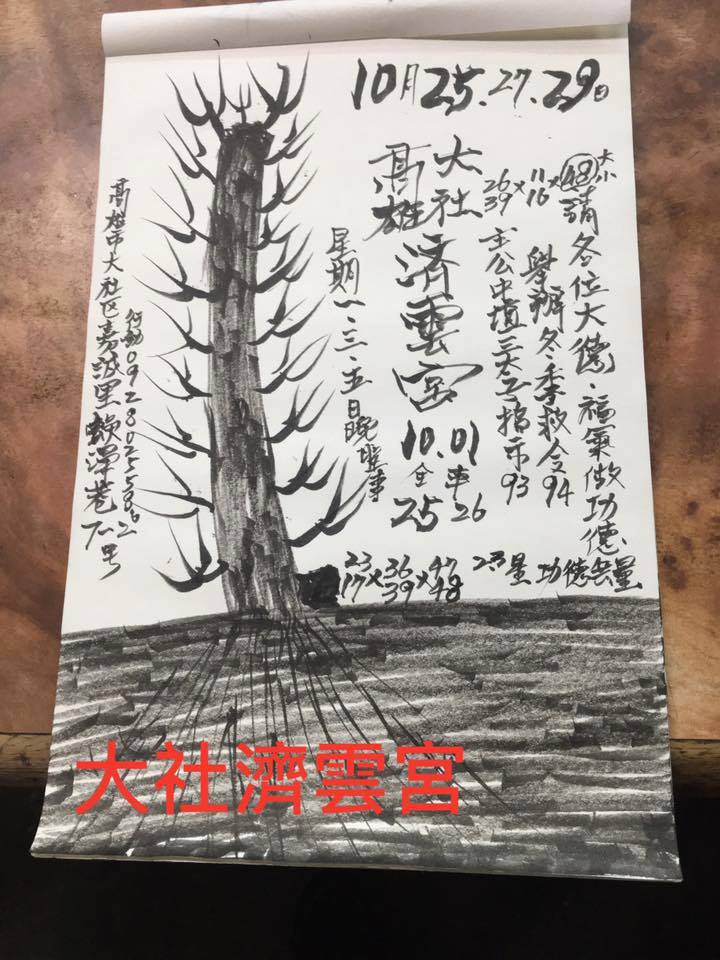 10月25.27.29日
大小
26 39 × 11 16 × 48
請各位大德.福氣做功德
舉辦冬季救令94
主公中壇三太子指示93
大社
高雄
濟雲宮
10.01
全車
25 26
星期一.三.五日晚辦事
23 17 × 36 39 × 47 48 2.3星 功德無量
行動0928025586
高雄市大社区嘉誠里
大社濟雲宮